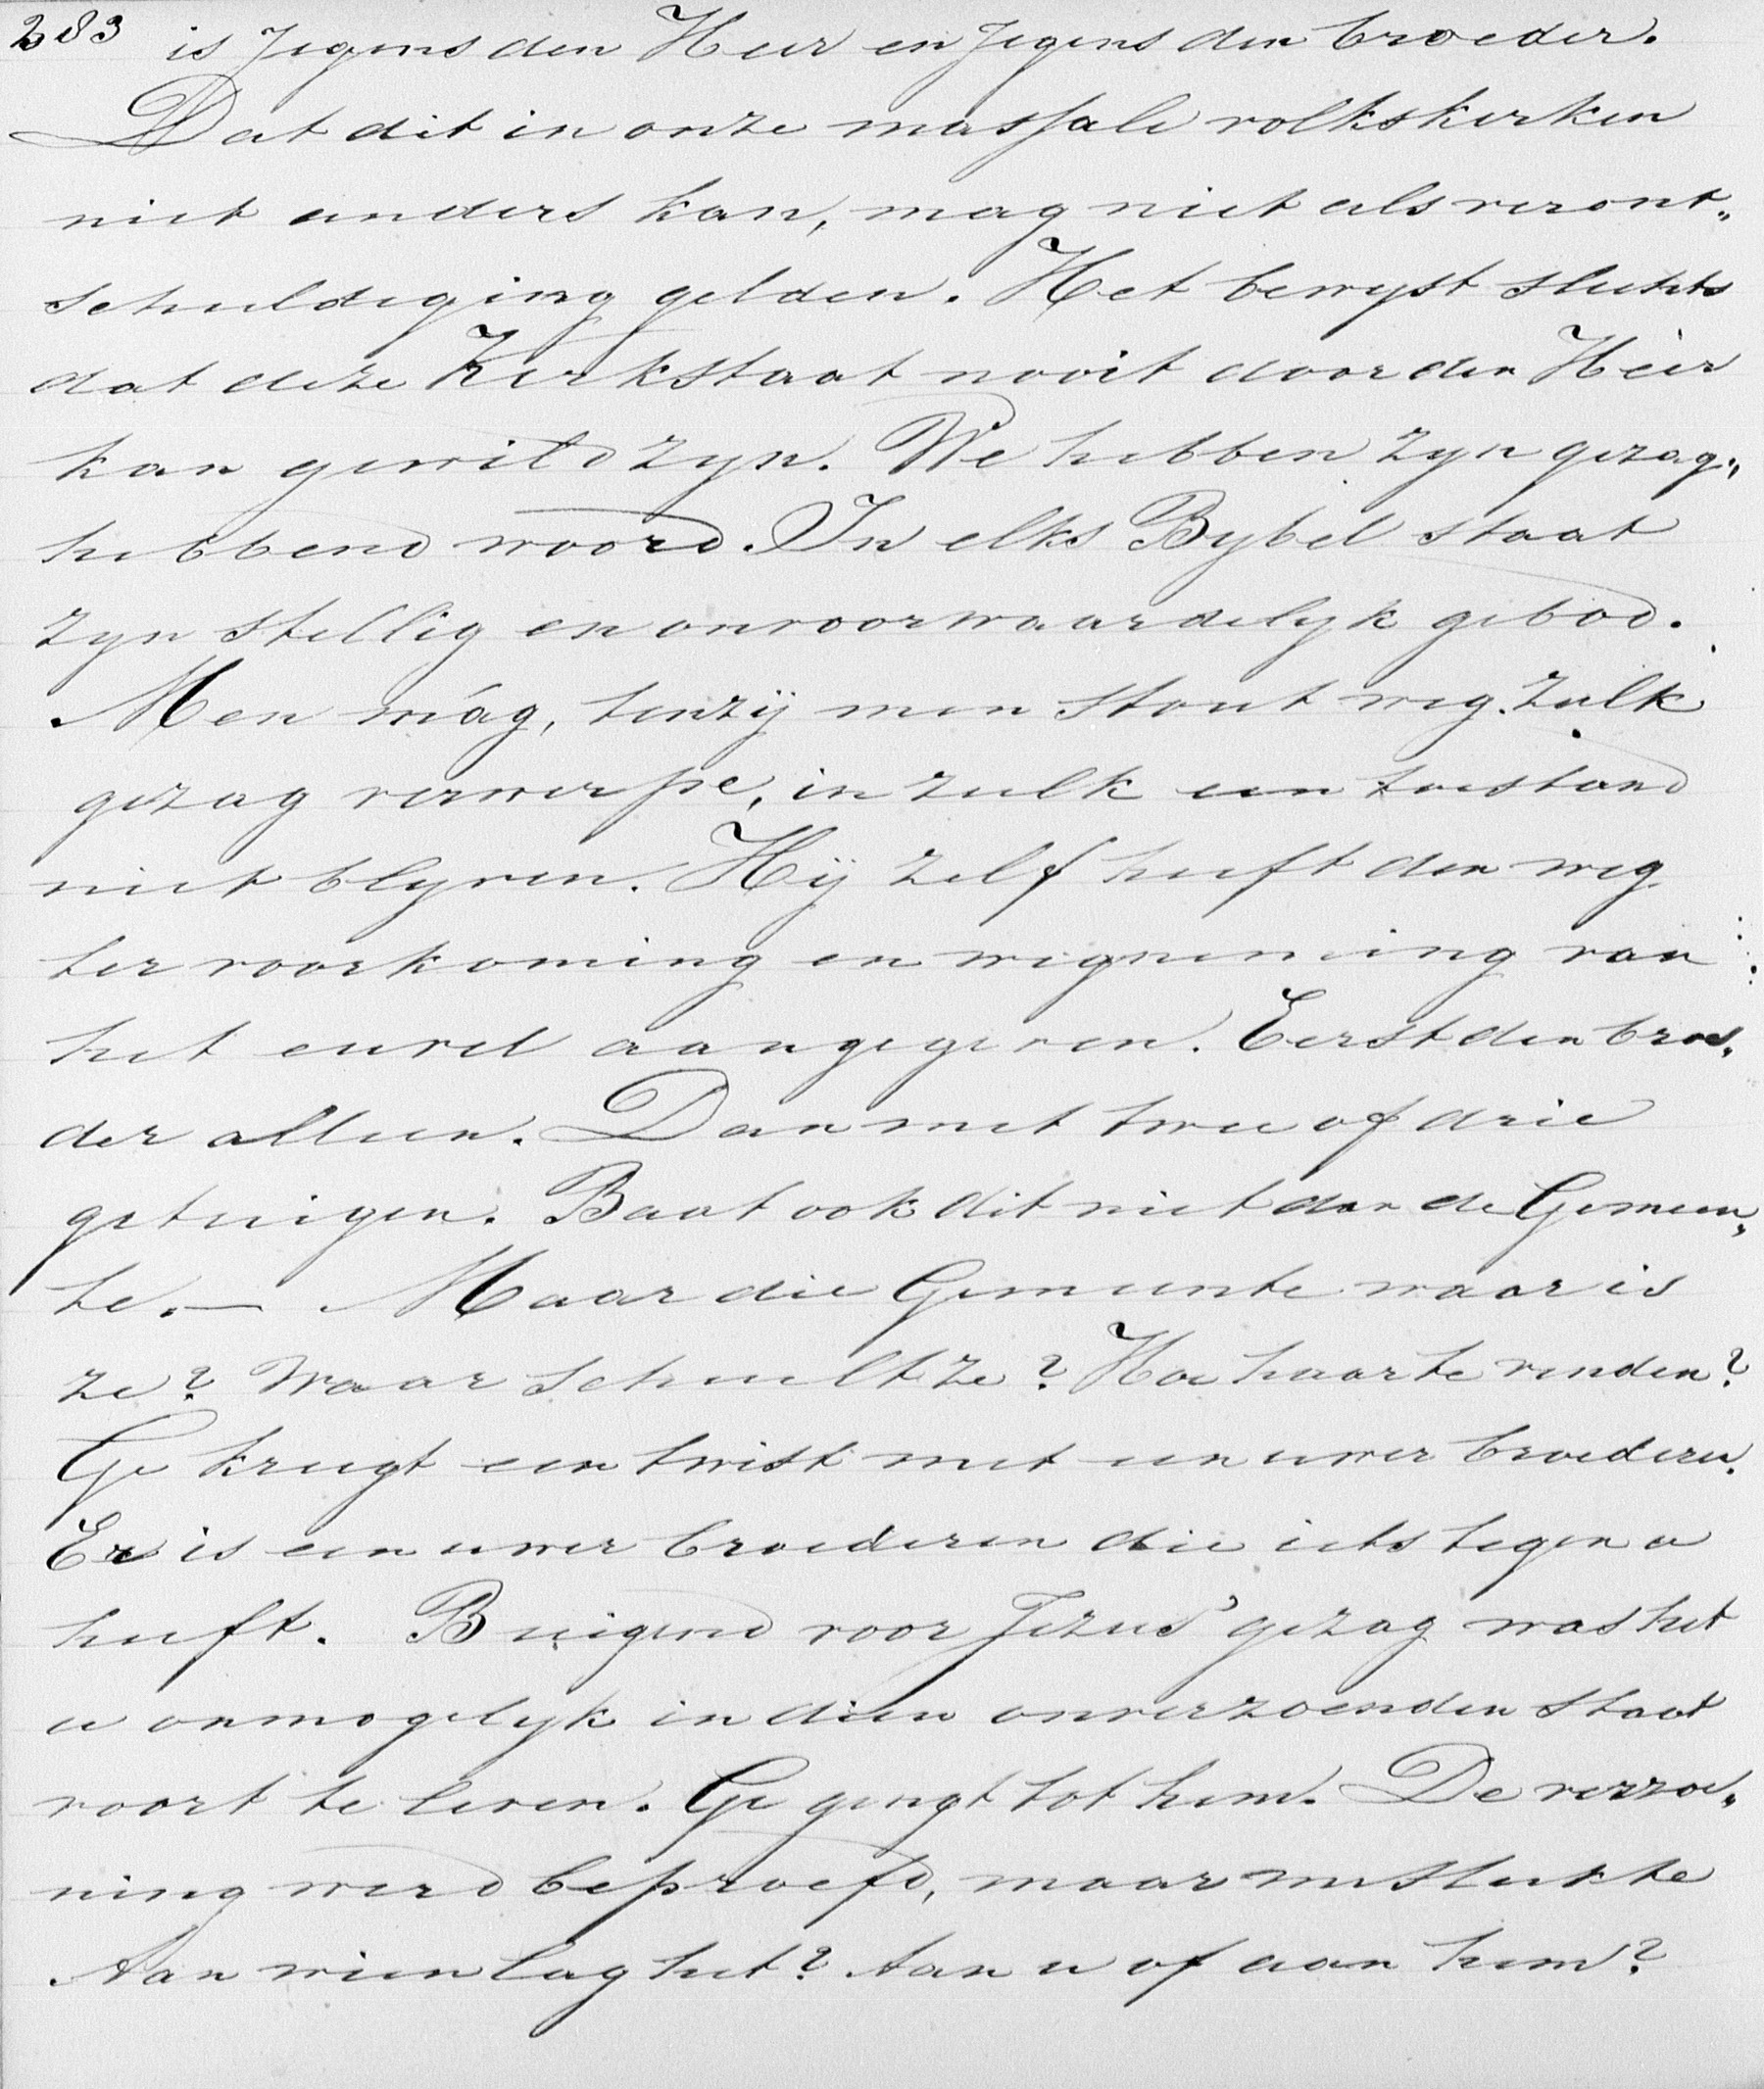 283 is jegens den Heer en jegens den broeder.
Dat dit in onze massale volkskerken
niet anders kan, mag niet als veront„
schuldiging gelden. Het bewyst slechts
dat deze Kerkstaat nooit door den Heer
kan gewild zyn. We hebben zyn gezag„
hebbend woord. In elks Bybel staat
zyn stellig en onvoorwaardelyk gebod.
Men mág, tenzij men stoutweg zulk
gezag verwerpe, in zulk een toestand
niet blyven. Hij zelf heeft den weg
ter voorkoming en wegneming van
het euvel aangegeven. Eerst den broe„
der alleen. Dan met twee of drie
getuigen. Baat ook dit niet dan de Gemeen„
te. — Maar die Gemeente waar is
ze? Waar schuilt ze? Hoe haar te vinden?
Ge krygt een twist met een uwer broederen.
Er is een uwer broederen die iets tegen u
heeft. Buigend voor Jezus' gezag was het
u onmogelyk in dien onverzoenden staat
voort te leven. Ge gingt tot hem. De verzoe„
ning werd beproefd, maar mislukte
Aan wien lag het? Aan u of aan hem?